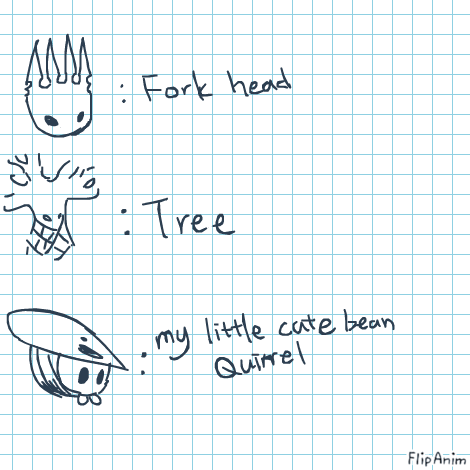 : Fork head
: Tree
: my little cute bean
Quirrel
FlipAnim